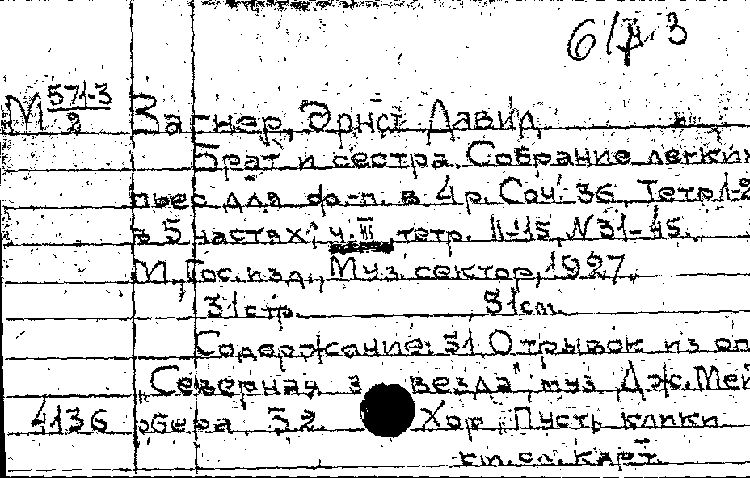 М 571-3/2 Вагнер, Эрнст Давид
Брат и сестра. Собрание легких
пьес для фо-п. в 4 р. Соч. 36. Тетр. 1-2
в 5 частях; ч. III тетр. 11-15, N 31-45.
М., Гос. изд., Муз. сектор, 1927.
31 стр. 31 см.
Содержание: 31. Отрывок из оп
"Северная звезда" муз. Дж. Мей
4136 рбера 32. Хор "Пусть клики
см. сл. карт.